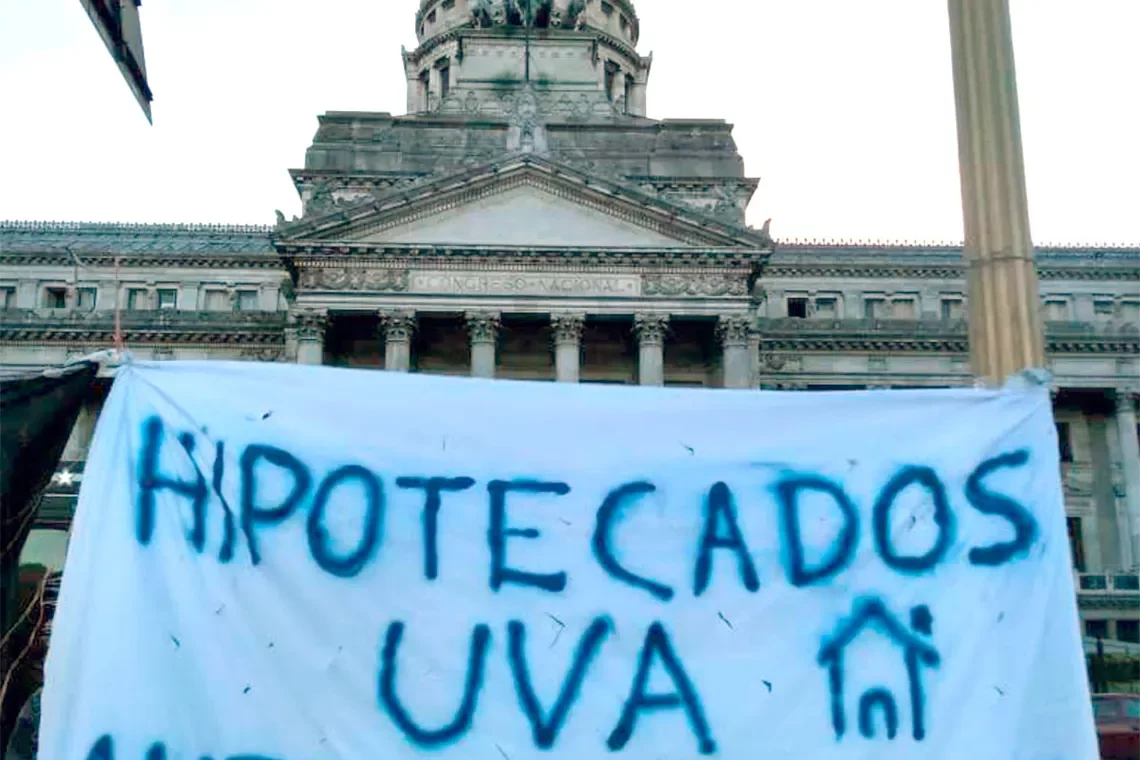 CONGRESO NACIONAL
HIPOTECADOS
UVA